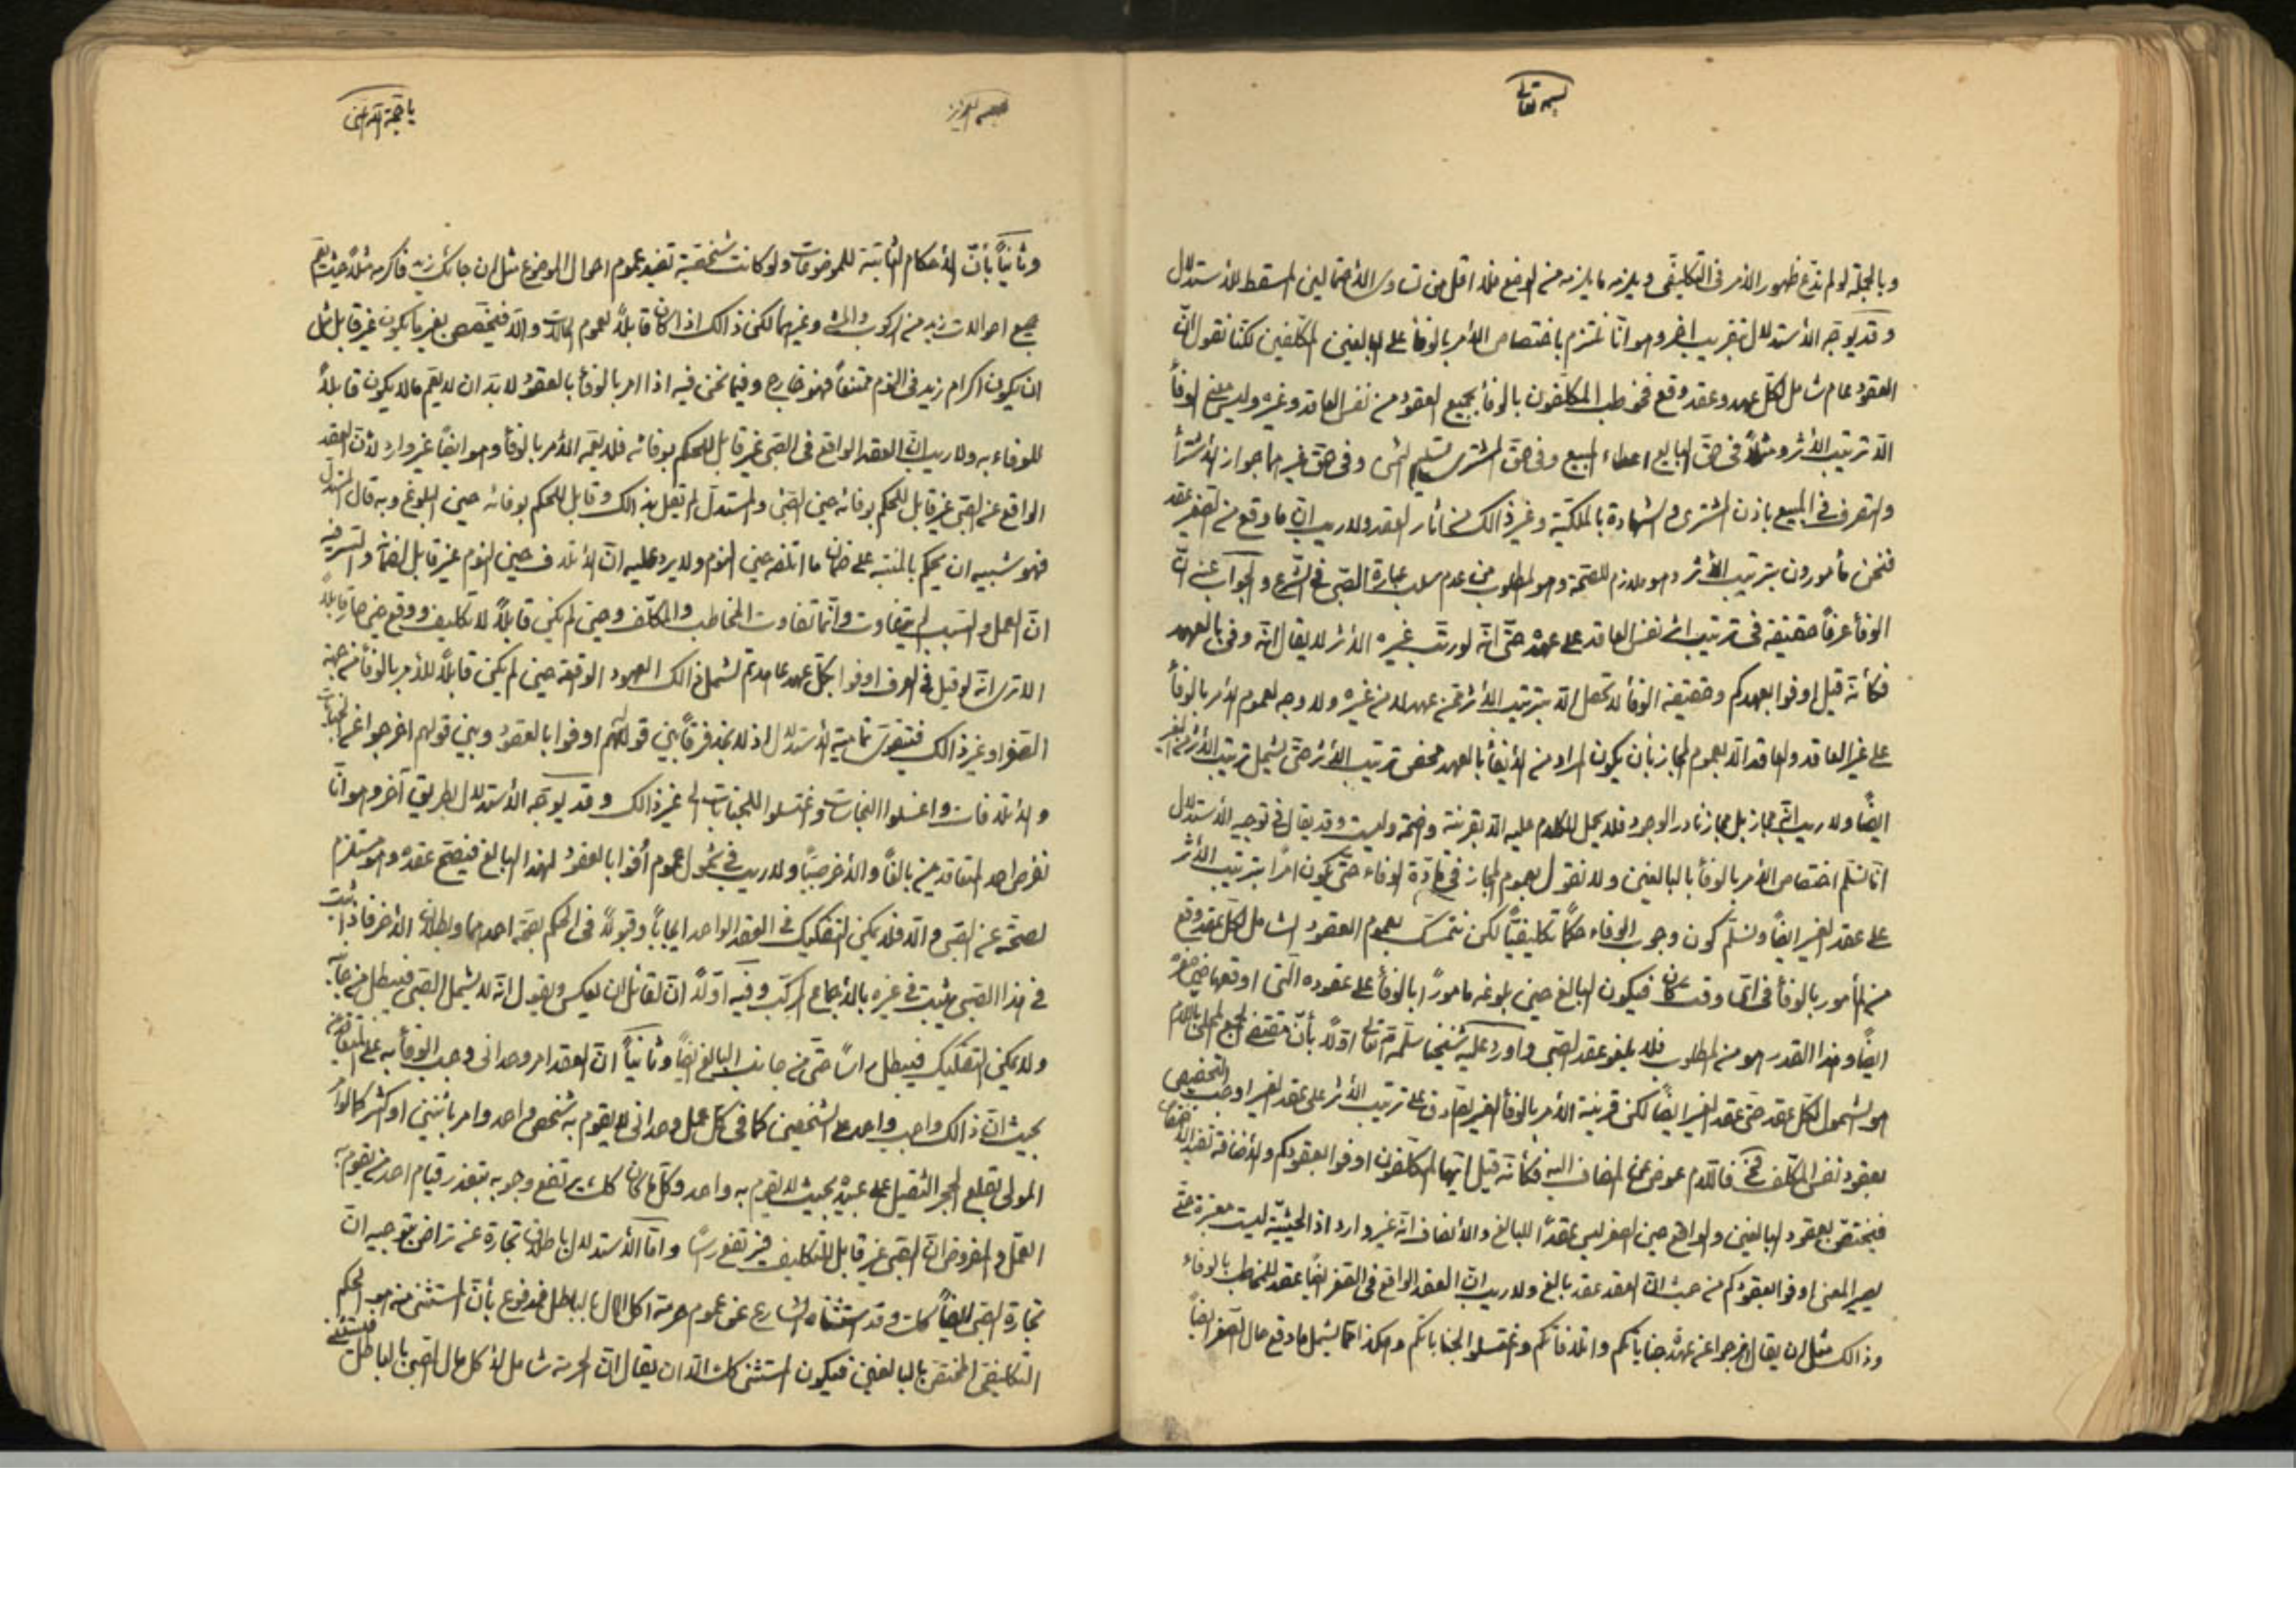 بسمه تعالى
وبالجملة لو لم ندّع ظهور الأمر فى التكليفى ويلزمه ما يلزمه من الوضع فلا اقل من تساوى الاحتمالين المسقط للاستدلال
وقد يوجّه الاستدلال بتقريب اخر وهو انّا نلتزم باختصاص الأمر بالوفاء على البالغين المكلّفين لكنّا نقول انّ
العقود عام شامل لكلّ عهد وعقد وقع فخوطب المكلّفون بالوفاء بجميع العقود من نفس العاقد وغيره وليس معنى الوفاء
الّا ترتيب الأثر ومثلاً فى حقّ البايع اعطاء المبيع وفى حقّ المشترى تسليم الثمن وفى حقّ غيرهما جواز الاشتراء
والتصرف فى المبيع باذن المشترى والشهادة بالملكيّة وغير ذالك من اثار العقد ولا ريب انّ ما وقع من الصغير عقد
فنحن مأمورون بترتيب الأثر وهو ملازم للصّحة وهو المطلوب من عدم سلب عبارة الصّبى فى الشرع والجواب عنه انّ
الوفاء عرفاً حقيقة فى ترتيب اثر نفس العاقد على عهده حتّى انّه لو رتّب غيره الأثر لا يقال انّه وفى بالعهد
فكأنّه قيل اوفوا بعهدكم وحقيقة الوفاء لا تحصل الّا بترتيب الأثر عن عهد لا من غيره ولا وجه لعموم الأمر بالوفاء
على غير العاقد والعاقد الّا بعموم المجاز بأن يكون المراد من الأيفاء بالعهد محض ترتيب الأثر حتّى يشمل ترتيب الأثر من الغير
ايضاً ولا ريب انّه مجاز بل مجاز نادر الوجود فلا يحمل الكلام عليه الّا بقرينة واضحة وليست وقد يقال فى توجيه الاستدلال
انّا نسلّم اختصاص الأمر بالوفاء بالبالغين ولا نقول بعموم المجاز فى مادّة الوفاء حتّى يكون امراً بترتيب الأثر
على عقد الغير ايضاً ونسلّم كون وجوب الوفاء حكماً تكليفيّاً لكن نتمسّك بعموم العقود الشامل لكلّ عقد وقع
من المأمور بالوفاء فى اىّ وقت كان فيكون البالغ حين بلوغه مأموراً بالوفاء على عقوده الّتى اوقعها فى صغره
ايضاً وهذا القدر هو من المطلوب فلا يلغو عقد الصّبى واورد عليه شيخنا سلّمه اللّه تعالى اوّلاً بأنّ مقتضى الجمع المحلّى باللام
هو الشمول لكلّ عقد حتّى عقد الغير ايضاً لكن قرينة الأمر بالوفاء الغير الصادق على ترتيب الأثر على عقد الغير اوجب التخصيص
بعقود نفس المكلّف فى فاللام عوض عن المضاف اليه فكأنّه قيل ايّها المكلّفون اوفوا بعقودكم والأضافة تفيد الاختصاص
فيختصّ بعقود البالغين والواقع حين الصغر ليس عقداً للبالغ والأنصاف انّه غير وارد اذ الحيثيّة ليست معتبرة حتّى
يصير المعنى اوفوا بعقودكم من حيث انّ العقد عقد بالغ ولا ريب انّ العقد الواقع فى الصغر ايضاً عقد للمخاطب بالوفاء
وذالك مثل ان يقال اخرجوا عن عهدة جناياتكم واتلافاتكم واغتسلوا لجناباتكم وهكذا ممّا يشمل ما وقع حال الصغر ايضاً
يا حجّة اللّه
وثانياً بأنّ الأحكام الثابتة للموضوعات ولو كانت شخصيّة تفيد عموم احوال الموضوع مثل ان جائك زيد فاكرمه مثلاً حيث يعمّ
جميع احوالات زيد من الركوب والمشى وغيرهما لكن ذالك اذا كان قابلاً لعموم الحالات والّا فيتخصّص بغير ما يكون غير قابل مثل
ان يكون اكرام زيد فى النوم ممتنعاً فهو خارج وفيما نحن فيه اذا امر بالوفاء بالعقود لا بدّ ان لا يعمّ ما لا يكون قابلاً
للوفاء به ولا ريب انّ العقد الواقع فى الصّبى غير قابل للحكم بوفائه فلا يعمّه الأمر بالوفاء وهو ايضاً غير وارد لأنّ العقد
الواقع عن الصّبى غير قابل للحكم بوفائه حين الصّبى والمستدلّ لم يقل بذالك وقابل للحكم بوفائه حين البلوغ وبه قال المستدلّ
فهو شبيه ان يحكم بالمنتبه على ضمان ما اتلفه حين النوم ولا يرد عليه انّ الأتلاف حين النوم غير قابل للضمان والسرّ فيه
انّ العمل والسبب لم يتفاوت وانّما تفاوت المخاطب والمكلّف وحين لم يكن قابلاً لا تكليف ووقع حين صار قابلاً
الا ترى انّه لو قيل فى العرف اوفوا بكلّ عهد عاهدتم لشمل ذالك العهود الواقعة حين لم يكن قابلاً للأمر بالوفاء من جهة
الصّغر او غير ذالك فيتقوّى تماميّة الاستدلال اذ لا نجد فرقاً بين قوله اوفوا بالعقود وبين قولهم اخرجوا عن الجنايات
والأتلافات واغسلوا النجاسات واغتسلوا للجنابات الى غير ذالك وقد يوجّه الاستدلال بطريق آخر وهو انّا
نفرض احد المتعاقدين بالغاً والأخر صبيّاً ولا ريب فى شمول عموم اوفوا بالعقود لهذا البالغ فيصحّ عقده وهو مستلزم
لصحّته عن الصّبى والّا فلا يمكن التفكيك فى العقد الواحد ايجاباً وقبولاً فى الحكم بصحّة احدهما وبطلان الأخر فاذا ثبت
فى هذا الصّبى يثبت فى غيره بالأجماع المركّب وفيه اوّلاً انّ لقائل ان يعكس ويقول انّه لا يشمل الصّبى فيبطل من جانبه
ولا يمكن التفكيك فيبطل رأساً حتّى من جانب البالغ ايضاً وثانياً انّ العقد امر وحدانى وجب الوفاء به على المتعاقدين
بحيث انّ ذالك واجب واحد على الشخصين كما فى كلّ عمل وحدانى لا يقوم به شخص واحد وامر باثنين او اكثر كما لو امر
المولى بقلع الحجر الثقيل على عبيده بحيث لا يقوم به واحد وكلّ ما كان كك يرتفع وجوبه بتعذر قيام احد من يقوم به
العمل والمفروض انّ الصّبى غير قابل للتكليف فيرتفع رأساً وامّا الاستدلال باطلاق تجارة عن تراض بتوجيه انّ
تجارة الصّبى ايضاً كك وقد استثناه الشارع عن عموم حرمة اكل المال بالباطل فمدفوع بأنّ المستثنى منه هو الحكم
التكليفى المختصّ بالبالغين فيكون المستثنى كك الّا ان يقال انّ الحرمة شامل لأكل مال الصّبى بالباطل فيستثنى